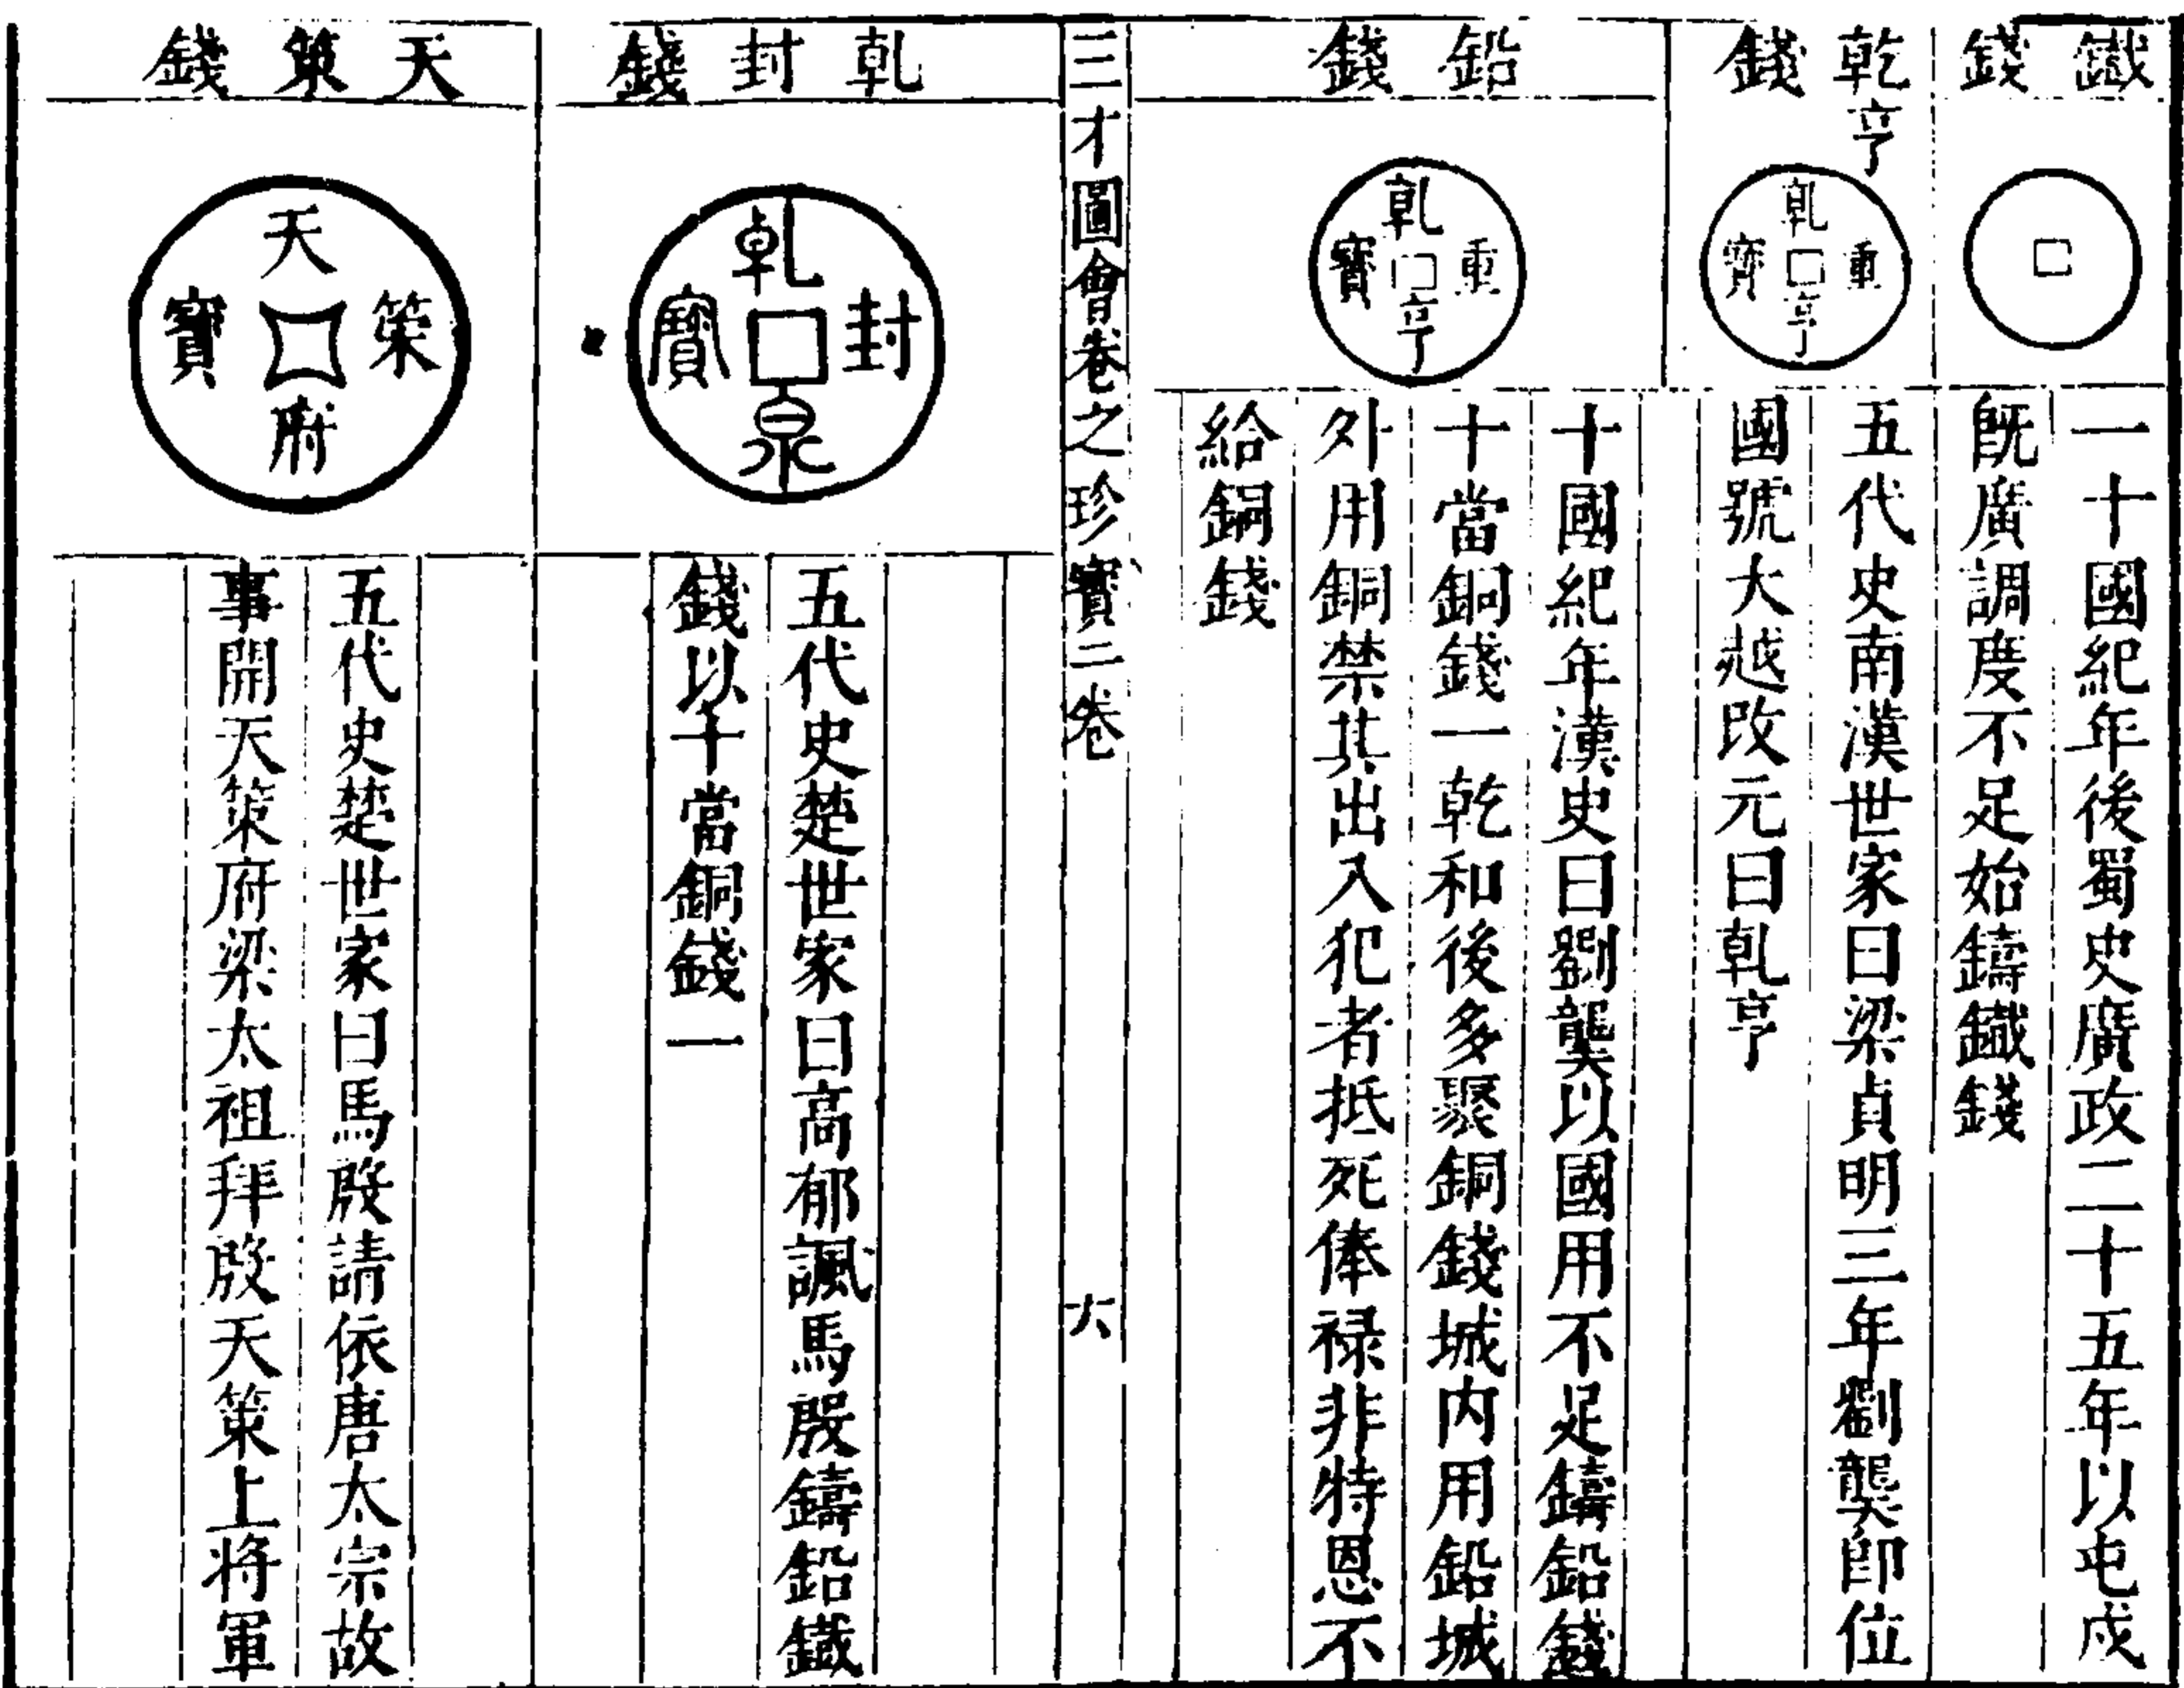 鐵錢
一十國紀年後蜀史廣政二十五年以屯戍
旣廣調度不足始鑄鐵錢
乾亨錢
乾亨重寶
五代史南漢世家曰梁貞明三年劉龑即位
國號大越改元曰乾亨
鉛錢
乾亨重寶
十國紀年漢史曰劉龑以國用不足鑄鉛錢
十當銅錢一乾和後多聚銅錢城内用鉛城
外用銅禁其出入犯者抵死俸禄非特恩不
給銅錢
三才圖會卷之珍寶二卷 六
乾封錢
乾封泉寶
五代史楚世家曰高郁諷馬殷鑄鉛鐵
錢以十當銅錢一
天策錢
天策府寶
五代史楚世家曰馬殷請依唐太宗故
事開天策府梁太祖拜殷天策上将軍